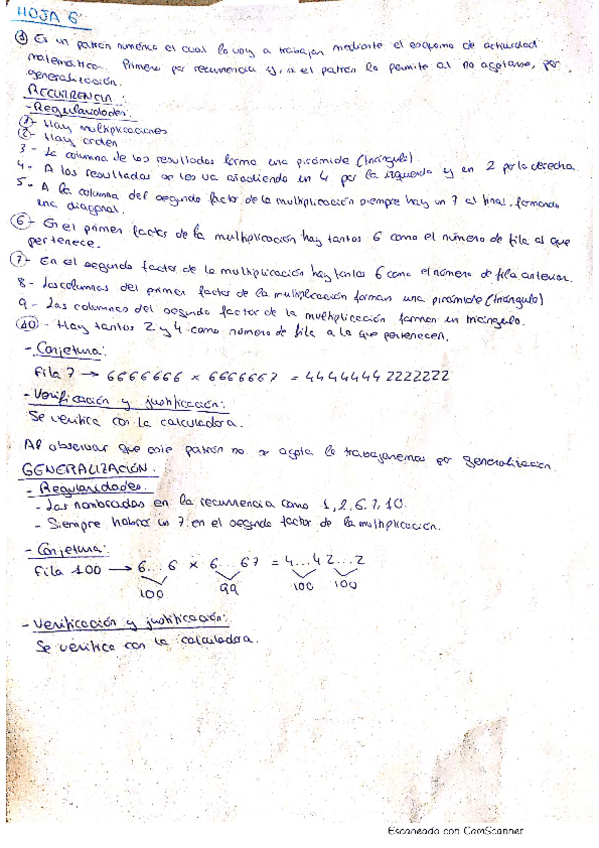 HOJA 6
① Es un patrón numérico el cual lo voy a trabajar mediante el esquema de actividad
matemático. Primero por recurrencia y, si el patrón lo permite al no agotarse, por
generalización.
RECURRENCIA:
- Regularidades:
① - Hay multiplicaciones
② - Hay orden
3 - La columna de los resultados forma una pirámide (triángulo)
4 - A los resultados se les va añadiendo un 4 por la izquierda y un 2 por la derecha.
5 - A la columna del segundo factor de la multiplicación siempre hay un 7 al final, formando
una diagonal.
⑥ - En el primer factor de la multiplicación hay tantos 6 como el número de fila al que
pertenece.
⑦ - En el segundo factor de la multiplicación hay tantos 6 como el número de fila anterior.
8 - Las columnas del primer factor de la multiplicación forman una pirámide (triángulo)
9 - Las columnas del segundo factor de la multiplicación forman un triángulo.
⑩ - Hay tantos 2 y 4 como número de fila a la que pertenecen.
- Conjetura:
Fila 7 → 6666666 x 6666667 = 44444442222222
- Verificación y justificación:
Se verifica con la calculadora.
Al observar que este patrón no se agota lo trabajaremos por generalización.
GENERALIZACIÓN.
- Regularidades.
- Las nombradas en la recurrencia como 1, 2, 6, 7, 10.
- Siempre habrá un 7 en el segundo factor de la multiplicación.
- Conjetura:
Fila 100 → 6...6 x 6...67 = 4...42...2
100 99 100 100
- Verificación y justificación:
Se verifica con la calculadora.
Escaneado con CamScanner